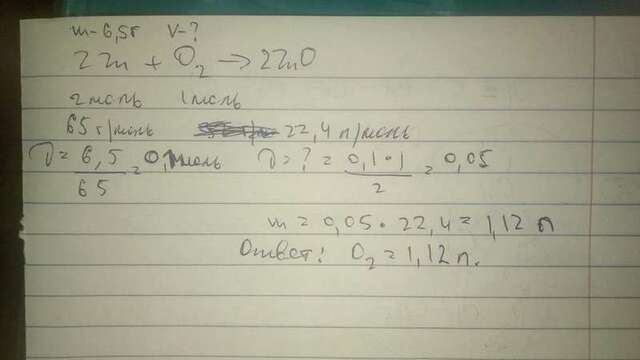 m-6,5г V-?
2Zn + O₂ → 2ZnO
2моль 1моль
65г/моль 22,4 л/моль
ν = 6,5/65 = 0,1моль ν = ? = 0,1·1/2 = 0,05
m = 0,05 · 22,4 = 1,12 л
Ответ: O₂ = 1,12 л.